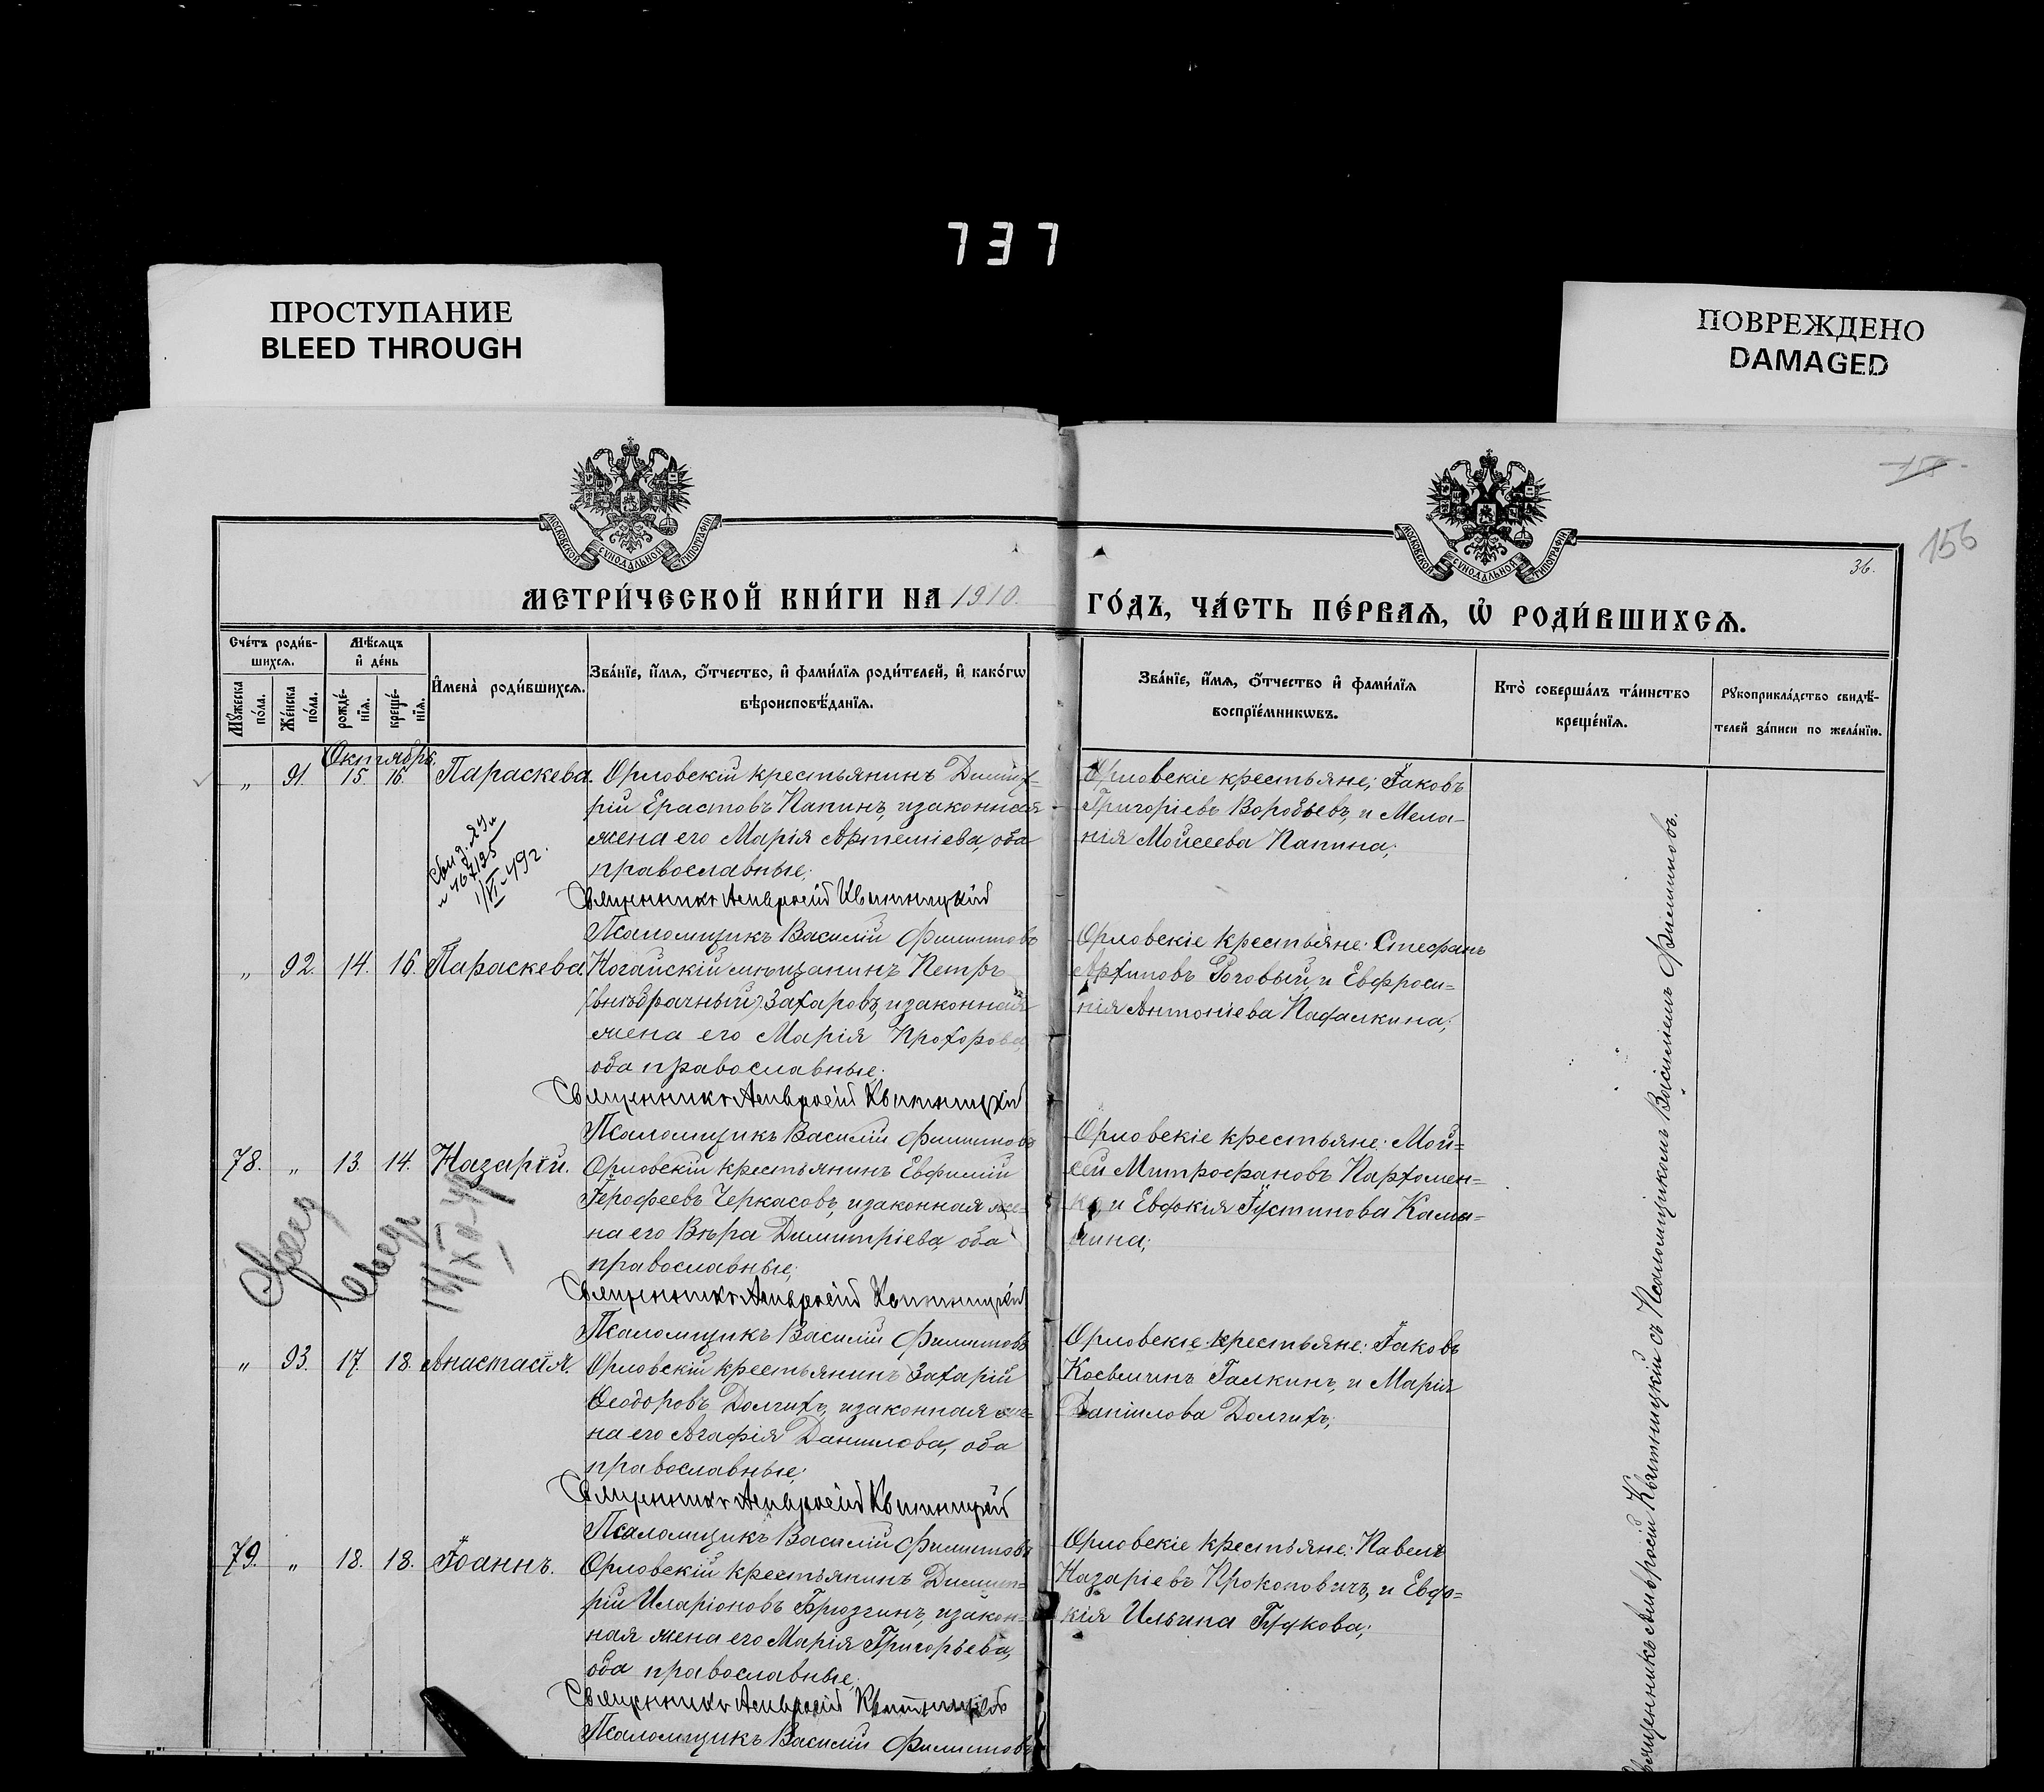 737
ПРОСТУПАНИЕ
BLEED THROUGH
ПОВРЕЖДЕНО
DAMAGED
МОСКОВСКОЙ СУНОДАЛЬНОЙ ТИПОГРАФІИ
МОСКОВСКОЙ СУНОДАЛЬНОЙ ТИПОГРАФІИ
156
36.
МЕТРИ́ЧЕСКОЙ КНИ́ГИ НА 1910.
ГО́ДЪ, ЧА́СТЬ ПЕ́РВАѦ, Ѡ҆ РОДИ́ВШИХСѦ.
Сче́тъ роди́в-
шихсѧ.
Мꙋ́жеска по́ла.
Же́нска по́ла.
Мѣ́сѧцъ
и҆ де́нь
рожде́-
нїѧ.
креще́-
нїѧ.
И҆мена̀ роди́вшихсѧ.
Зва́нїе, и҆́мѧ, ѻ҆́тчество, и҆ фами́лїѧ роди́телей, и҆ како́гѡ
вѣроисповѣ́данїѧ.
Зва́нїе, и҆́мѧ, ѻ҆́тчество и҆ фами́лїѧ
воспрїе́мникѡвъ.
Кто̀ соверша́лъ та́инство
креще́нїѧ.
Рꙋкоприкла́дство свидѣ́-
телей за́писи по жела́нїю.
Октябрь.
„ 91. 15. 16. Параскева. Орловскій крестьянинъ Димит-
рій Ерастовъ Папинъ, и законная
жена его Марія Артеміева, оба
православные;
Священникъ Амвросій Квитницкій
Псаломщикъ Василій Филипповъ
Орловскіе крестьяне; Іаковъ
Григоріевъ Воробьевъ, и Мела-
нія Моисеева Папина;
„ 92. 14. 16. Параскева. Ногайскій мѣщанинъ Петръ
(внѣбрачный) Захаровъ, и законная
жена его Марія Прохорова,
оба православные;
Священникъ Амвросій Квитницкій
Псаломщикъ Василій Филипповъ
Орловскіе крестьяне: Стефанъ
Архиповъ Роговый, и Евфроси-
нія Антоніева
78. „ 13. 14. Назарій. Орловскій крестьянинъ Евфимій
Іерофеевъ Черкасовъ, и законная же-
на его Вѣра Димитріева, оба
православные;
Священникъ Амвросій Квитницкій
Псаломщикъ Василій Филипповъ
Орловскіе крестьяне: Мои-
сей Митрофановъ Пархомен-
ко, и Евдокія Іустинова
„ 93. 17. 18. Анастасія. Орловскій крестьянинъ Захарій
Ѳеодоровъ Долгихъ, и законная же-
на его Агафія Данилова, оба
православные;
Священникъ Амвросій Квитницкій
Псаломщикъ Василій Филипповъ
Орловскіе крестьяне: Іаковъ
Косьминъ Галкинъ, и Марія
Даніилова Долгихъ;
79. „ 18. 18. Іоаннъ. Орловскій крестьянинъ Димит-
рій Иларіоновъ Брюзгинъ, и закон-
ная жена его Марія Григорьева,
оба православные;
Священникъ Амвросій Квитницкій
Псаломщикъ Василій Филипповъ
Орловскіе крестьяне: Павелъ
Назаріевъ Прокоповичъ, и Евдо-
кія Ильина
Священникъ Амвросій Квитницкій съ Псаломщикомъ Василіемъ Филипповъ.